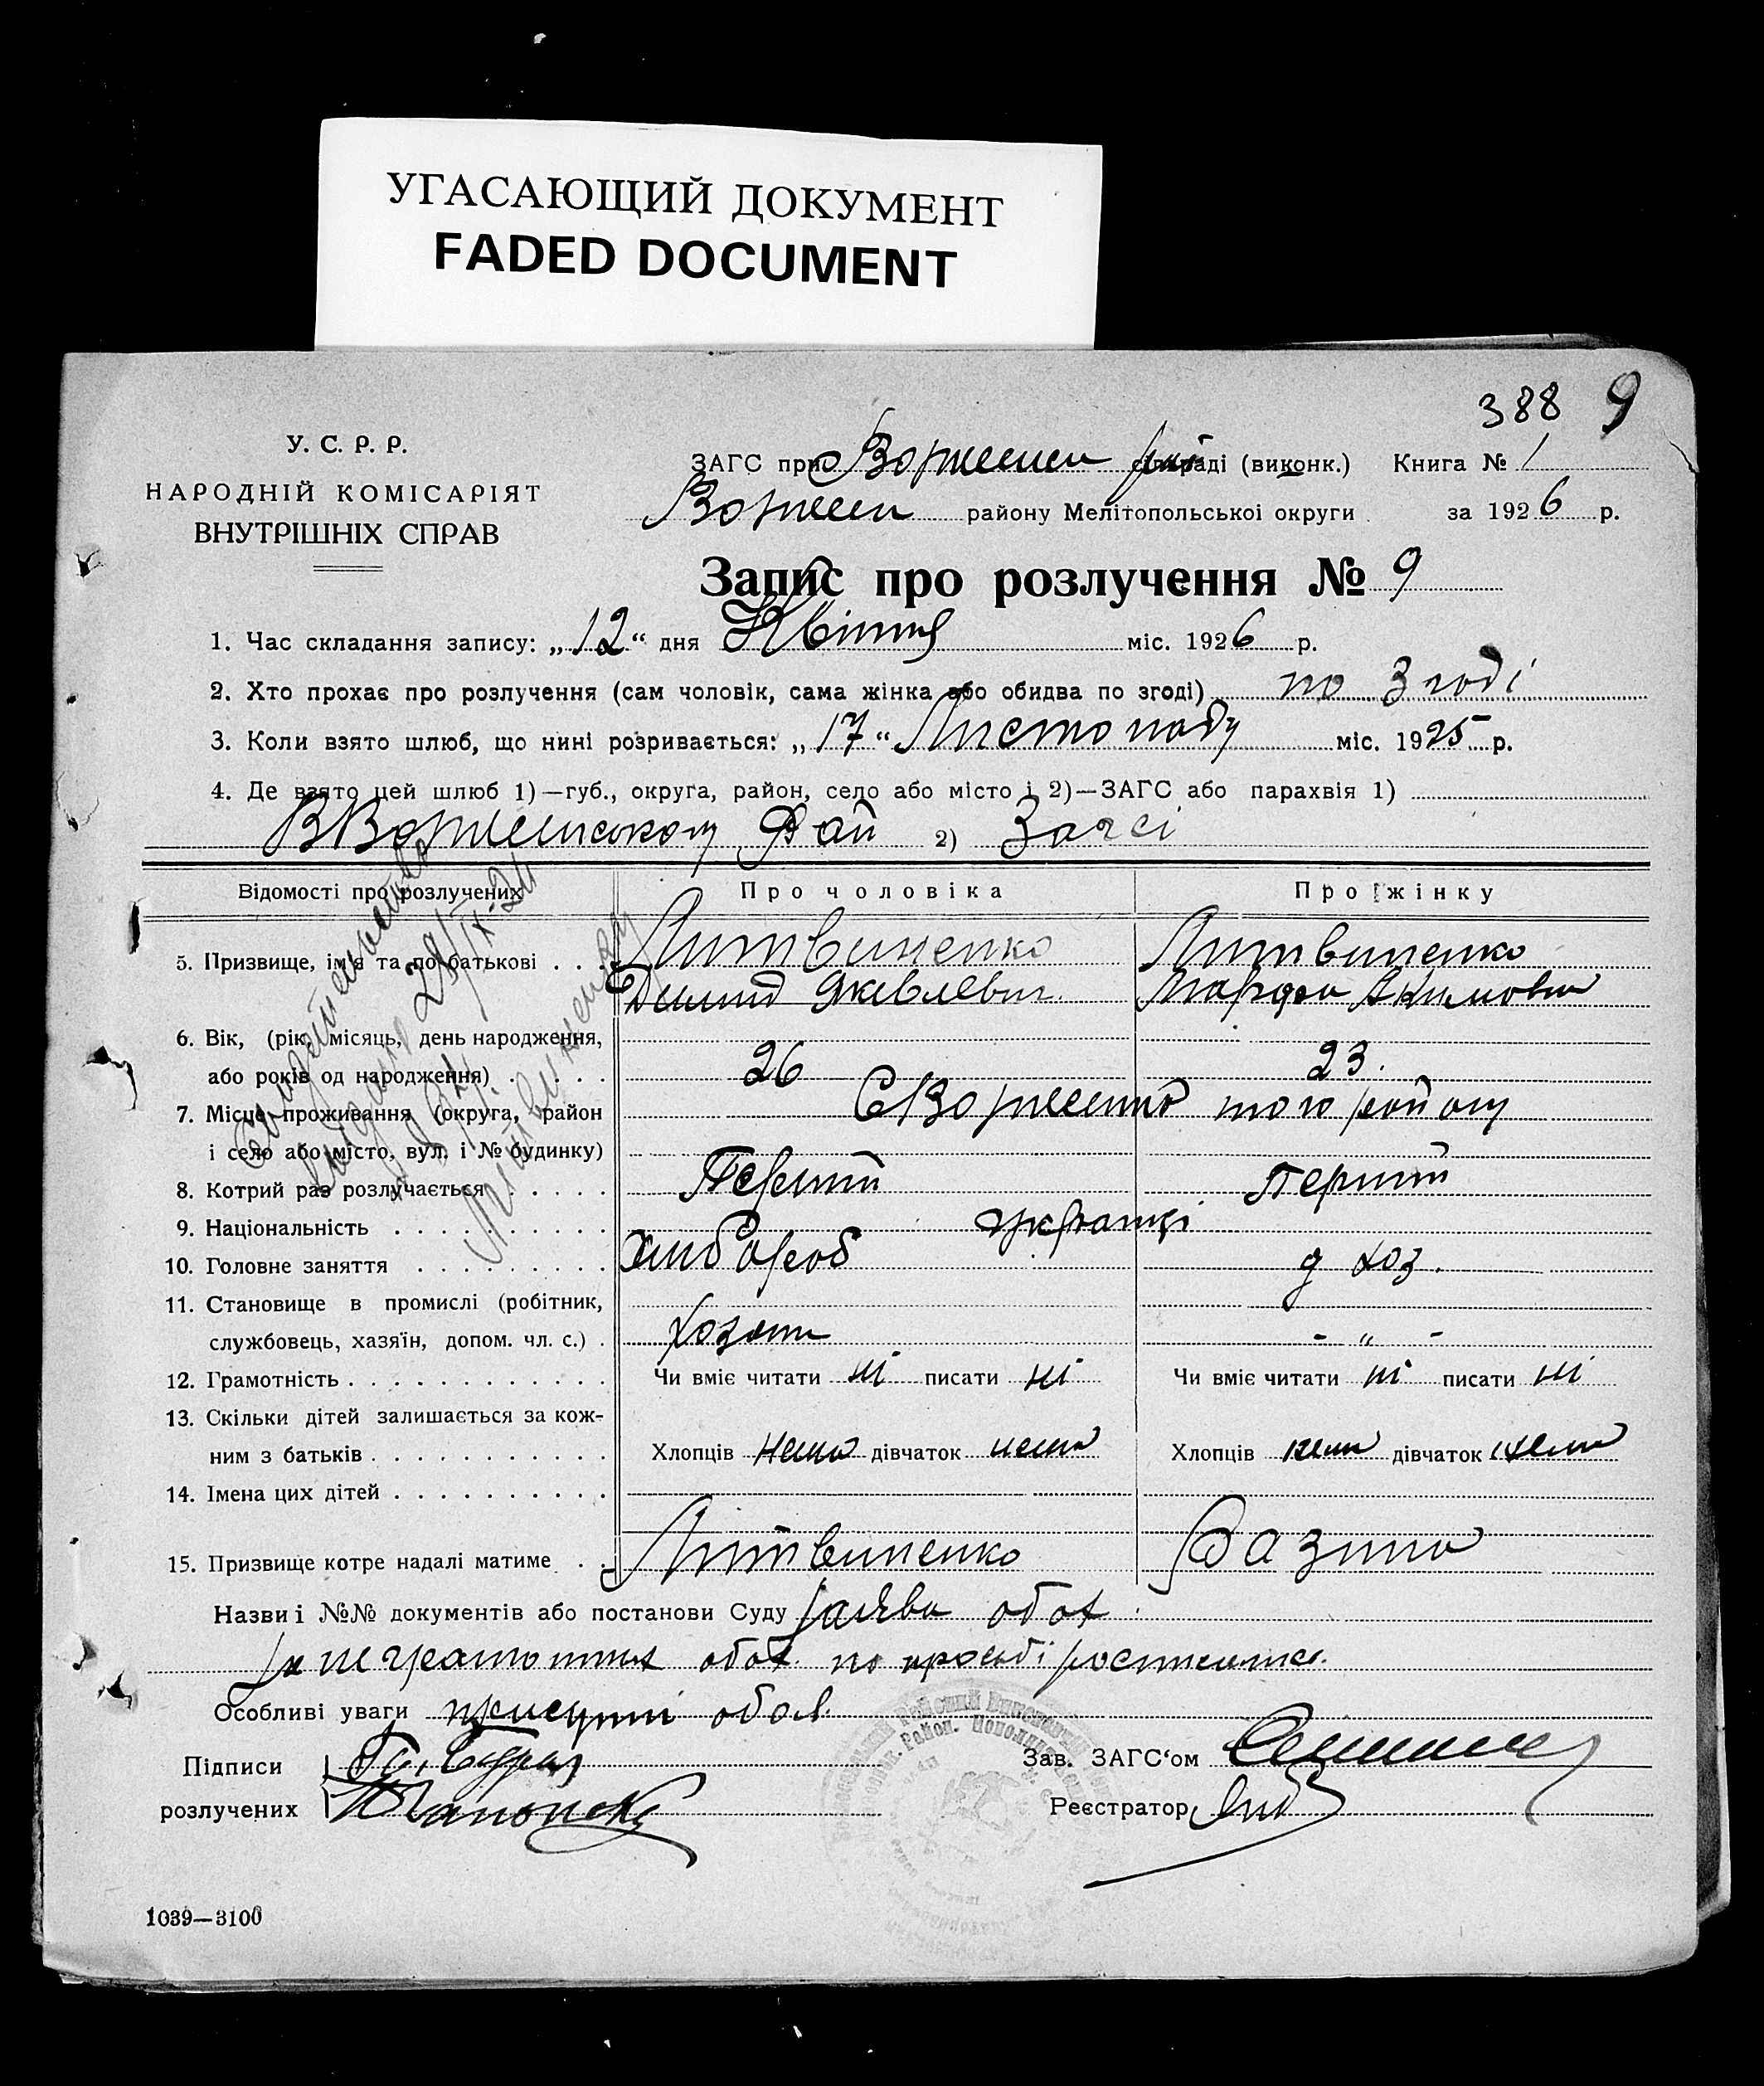 УГАСАЮЩИЙ ДОКУМЕНТ
FADED DOCUMENT
388 9
У. С. Р. Р.
НАРОДНІЙ КОМІСАРІЯТ
ВНУТРІШНІХ СПРАВ
ЗАГС при раді (виконк.) Книга № 1
району Мелітопольської округи за 1926 р.
Запис про розлучення № 9
1. Час складання запису: „12“ дня Квітня міс. 1926 р.
2. Хто прохає про розлучення (сам чоловік, сама жінка або обидва по згоді) по згоді
3. Коли взято шлюб, що нині розривається: „17“ Листопаду міс. 1925 р.
4. Де взято цей шлюб 1)—губ., округа, район, село або місто і 2)—ЗАГС або парахвія 1)
Рай 2) Загсі
Відомості про розлучених Про чоловіка Про жінку
5. Призвище, ім'я та по-батькові . . . Литвиненко Литвиненко
Демид Яковлевич Марфа Акимовна
6. Вік, (рік, місяць, день народження,
або років од народження) . . . . 26 23.
7. Місце проживання (округа, район того району
і село або місто, вул. і № будинку)
8. Котрий раз розлучається . . . . . Перший Перший
9. Національність . . . . . . . . . українці
10. Головне заняття . . . . . . . . . хлібороб д хоз.
11. Становище в промислі (робітник,
службовець, хазяїн, допом. чл. с.) . хозяин - „ -
12. Грамотність . . . . . . . . . . . . Чи вміє читати ні писати ні Чи вміє читати ні писати ні
13. Скільки дітей залишається за кож-
ним з батьків . . . . . . . . . . . Хлопців нема дівчаток нема Хлопців нема дівчаток нема
14. Імена цих дітей . . . . . . . . . .
15. Призвище котре надалі матиме . . Литвиненко
Назви і №№ документів або постанови Суду заява обох
за неграмотних обох по просьбі
Особливі уваги присутні обоє
Підписи Зав. ЗАГС‘ом
розлучених Реєстратор
1039—3100